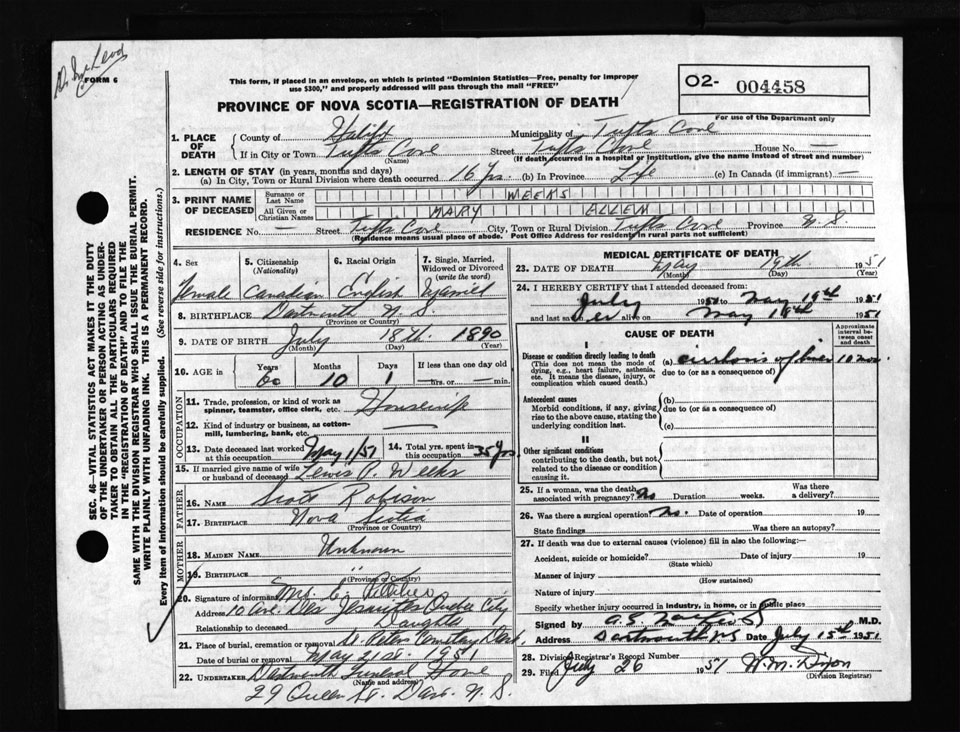 FORM 6
This form, if placed in an envelope, on which is printed "Dominion Statistics—Free, penalty for improper
use $300," and properly addressed will pass through the mail "FREE"
PROVINCE OF NOVA SCOTIA—REGISTRATION OF DEATH
02- 004458
For use of the Department only
1. PLACE OF DEATH County of Halifx Municipality of Tufts Cove
If in City or Town Tufts Cove (Name) Street Tufts Cove House No. —
(If death occurred in a hospital or institution, give the name instead of street and number)
2. LENGTH OF STAY (in years, months and days)
(a) In City, Town or Rural Division where death occurred 16 Yrs. (b) In Province Life (c) In Canada (if immigrant) —
3. PRINT NAME OF DECEASED Surname or Last Name WEEKS
All Given or Christian Names MARY ELLEN
RESIDENCE No. — Street Tufts Cove City, Town or Rural Division Tufts Cove Province N.S.
(Residence means usual place of abode. Post Office Address for residents in rural parts not sufficient)
4. Sex Female
5. Citizenship (Nationality) Canadian
6. Racial Origin English
7. Single, Married, Widowed or Divorced (write the word) Married
8. BIRTHPLACE Dartmouth N.S.
(Province or Country)
9. DATE OF BIRTH July (Month) 18th (Day) 1890 (Year)
10. AGE in Years 60 Months 10 Days 1 If less than one day old — hrs. or — min.
OCCUPATION
11. Trade, profession, or kind of work as spinner, teamster, office clerk, etc. Housewife
12. Kind of industry or business, as cotton-mill, lumbering, bank, etc. —
13. Date deceased last worked at this occupation May 1/51 14. Total yrs. spent in this occupation 35 yrs
15. If married give name of wife or husband of deceased Lewis P. Weeks
FATHER
16. NAME Scott Robison
17. BIRTHPLACE Nova Scotia
(Province or Country)
MOTHER
18. MAIDEN NAME Unknown
19. BIRTHPLACE "
(Province or Country)
20. Signature of informant Mrs. C.
Address 10 Ave. Des Quebec City
Relationship to deceased Daughter
21. Place of burial, cremation or removal St. Peters Cemetery Dart.
Date of burial or removal May 21st. 1951
22. UNDERTAKER Dartmouth Funeral Home
(Name and address)
29 Queen St. Dart. N.S.
MEDICAL CERTIFICATE OF DEATH
23. DATE OF DEATH May (Month) 19th (Day) 1951 (Year)
24. I HEREBY CERTIFY that I attended deceased from:
July 1951 to May 19th 1951
and last saw her alive on May 19th 1951
CAUSE OF DEATH
Approximate interval between onset and death
I
Disease or condition directly leading to death
(This does not mean the mode of dying, e.g., heart failure, asthenia, etc. It means the disease, injury, or complication which caused death.)
(a) cirrhosis of liver 10 mos.
due to (or as a consequence of)
Antecedent causes
Morbid conditions, if any, giving rise to the above cause, stating the underlying condition last
(b)
due to (or as a consequence of)
(c)
II
Other significant conditions
contributing to the death, but not related to the disease or condition causing it.
25. If a woman, was the death associated with pregnancy? No Duration weeks. Was there a delivery?
26. Was there a surgical operation? No. Date of operation 19
State findings Was there an autopsy?
27. If death was due to external causes (violence) fill in also the following:—
Accident, suicide or homicide? (State which) Date of injury 19
Manner of injury
(How sustained)
Nature of injury
Specify whether injury occurred in industry, in home, or in public place
Signed by M.D.
Address Dartmouth NS Date July 15th 1951
28. Division Registrar's Record Number
29. Filed July 26 1951 W.M. Dixon
(Division Registrar)
SEC. 46—VITAL STATISTICS ACT MAKES IT THE DUTY
OF THE UNDERTAKER OR PERSON ACTING AS UNDER-
TAKER TO OBTAIN ALL THE PARTICULARS REQUIRED
IN THE "REGISTRATION OF DEATH" AND TO FILE THE
SAME WITH THE DIVISION REGISTRAR WHO SHALL ISSUE THE BURIAL PERMIT.
WRITE PLAINLY WITH UNFADING INK. THIS IS A PERMANENT RECORD.
Every item of information should be carefully supplied. (See reverse side for instructions.)